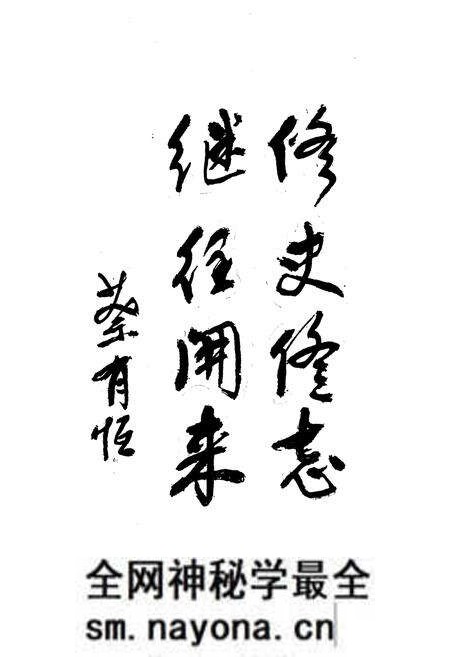 修史修志
继往开来
蔡有恒
全网神秘学最全
sm.nayona.cn